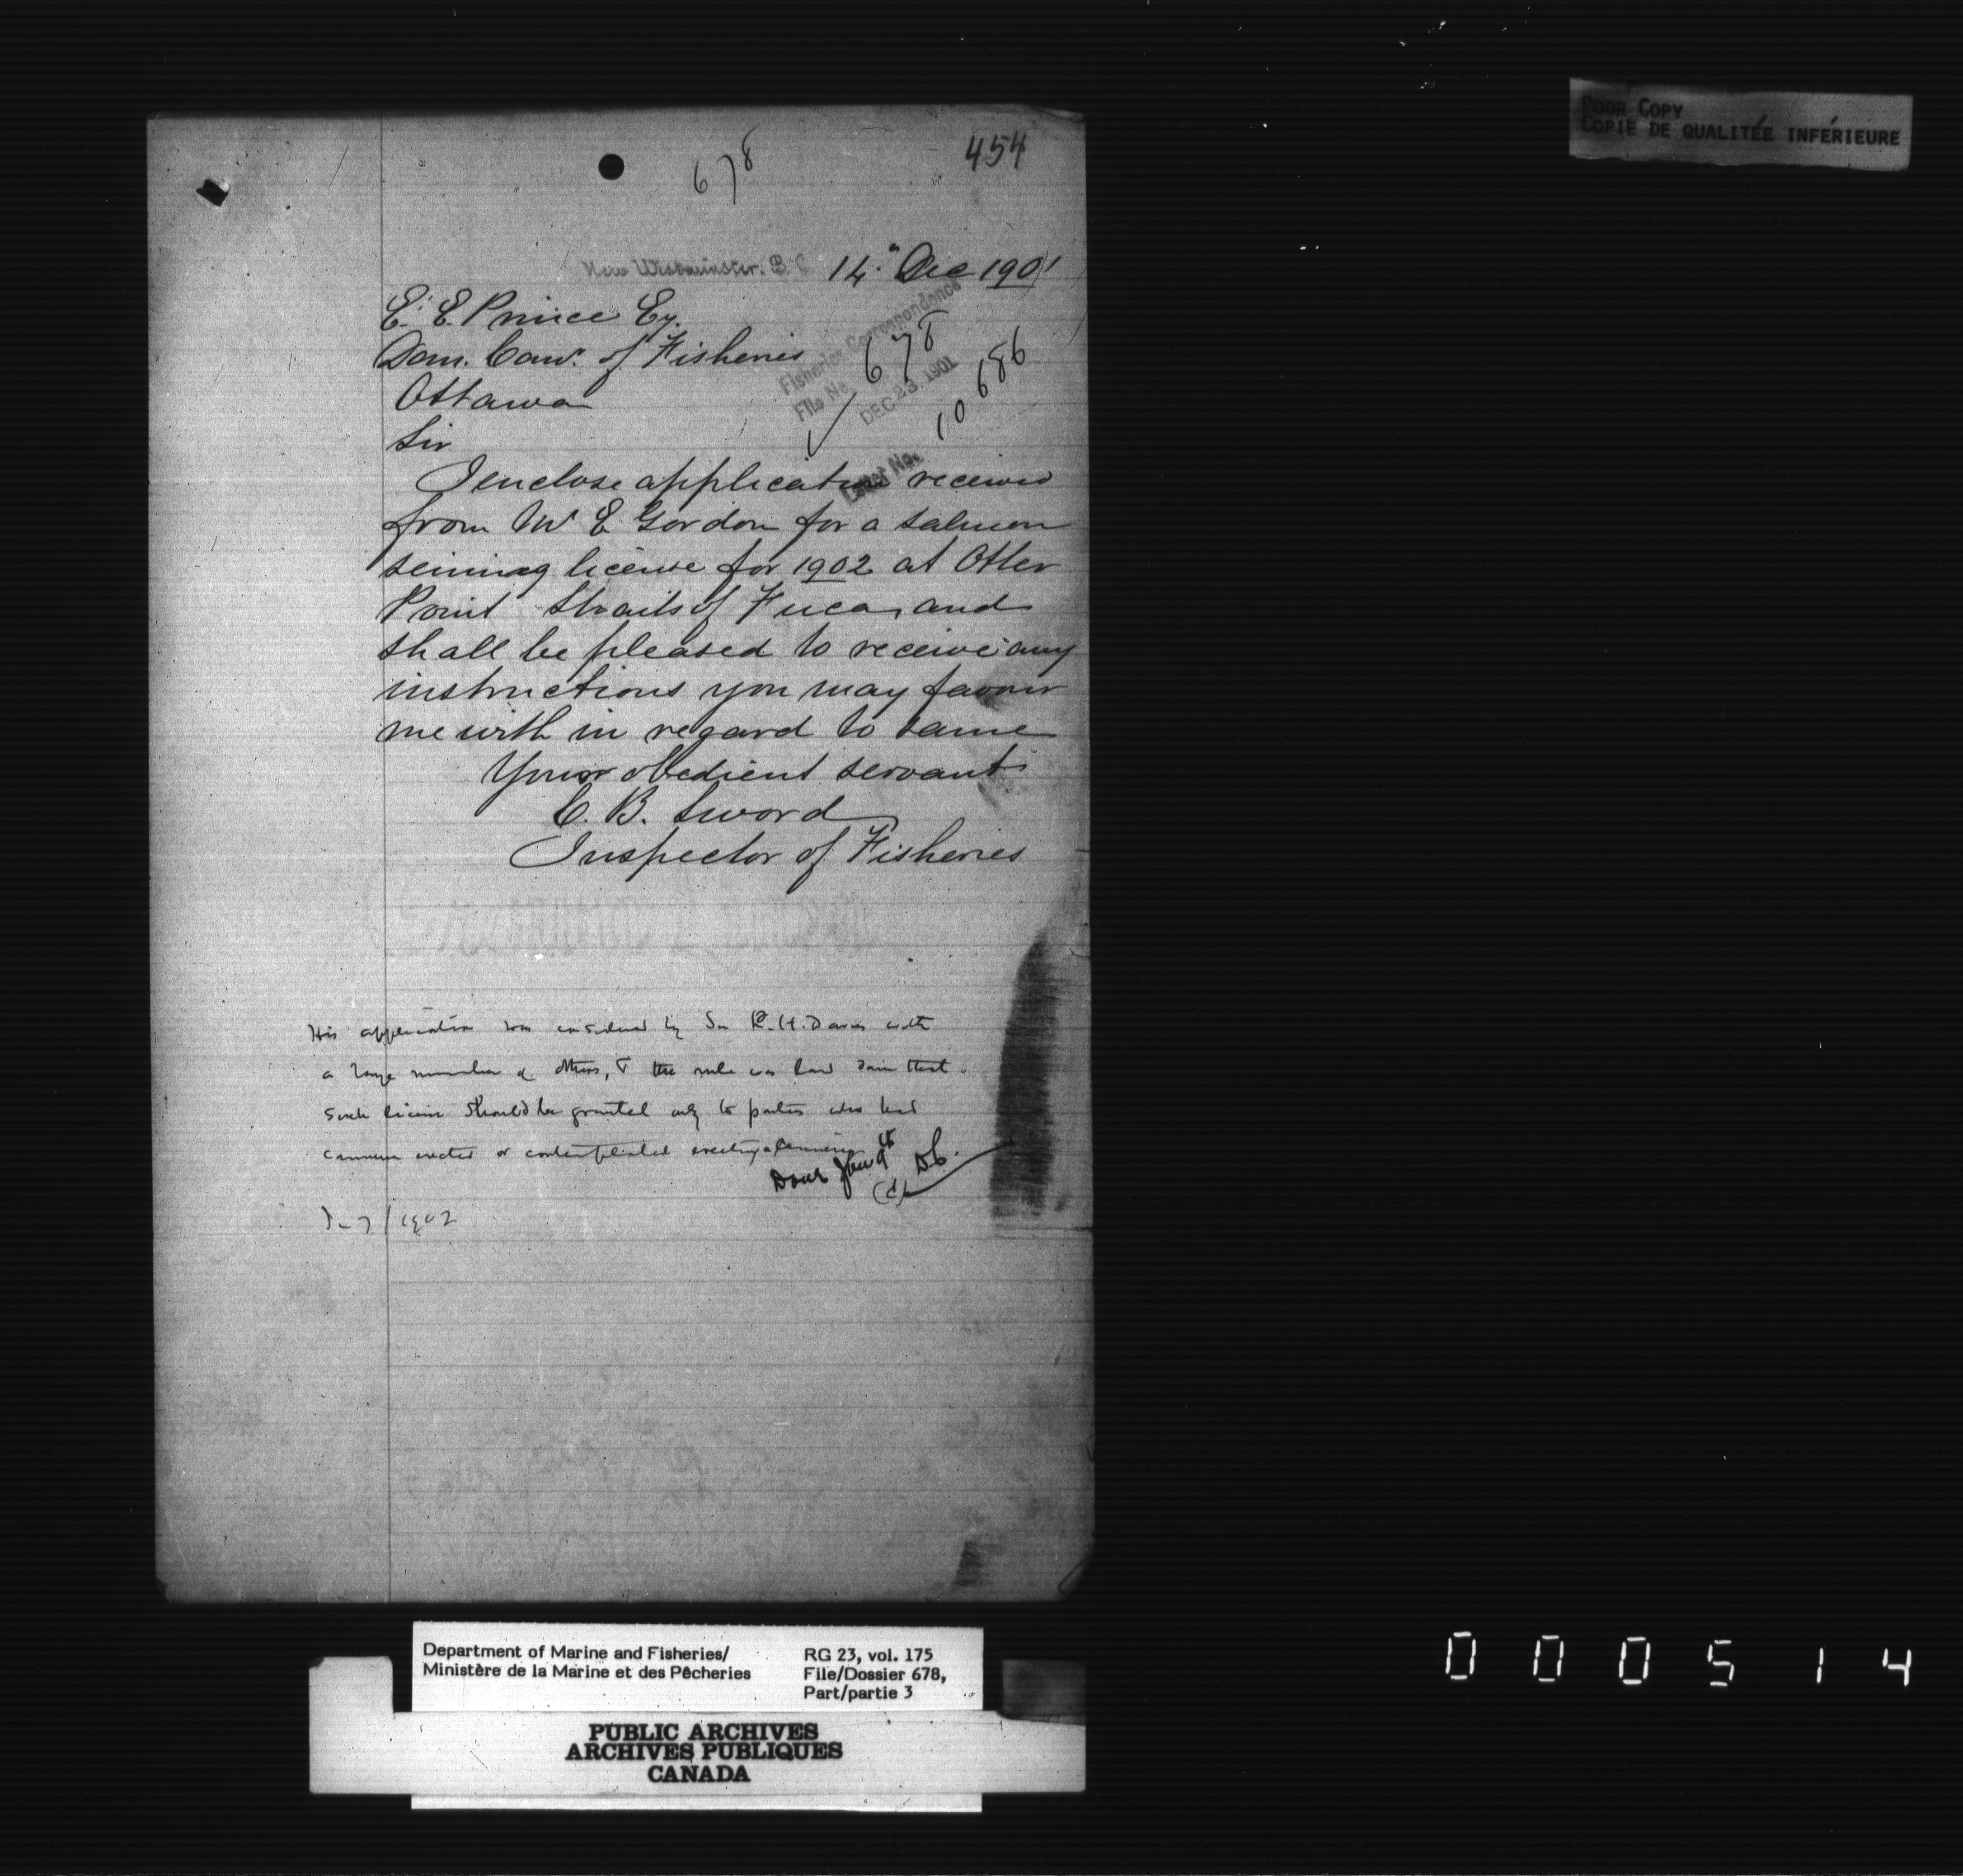 POOR COPY
COPIE DE QUALITÉE INFÉRIEURE
678
454
New Westminster. B. C. 14" Dec 1901
E. E. Prince Esq.
Dom. Com'. of Fisheries
Ottawa
Fisheries Correspondence
File No. 678
DEC 23 1901
Letter No. 10686
Sir
I enclose application received
from W E Gordon for a salmon
seining license for 1902 at Otter
Point Straits of Fuca, and
shall be pleased to receive any
instructions you may favour
me with in regard to same
Your obedient servant
C. B. Sword
Inspector of Fisheries
His application was considered by Sir L. H. Davies with
a large number of others, & the rule was laid down that
such license should be granted only to parties who had
erected or contemplated erecting a cannery
Done Jan 9th
7/1902
Department of Marine and Fisheries/
Ministère de la Marine et des Pêcheries
RG 23, vol. 175
File/Dossier 678,
Part/partie 3
PUBLIC ARCHIVES
ARCHIVES PUBLIQUES
CANADA
000514